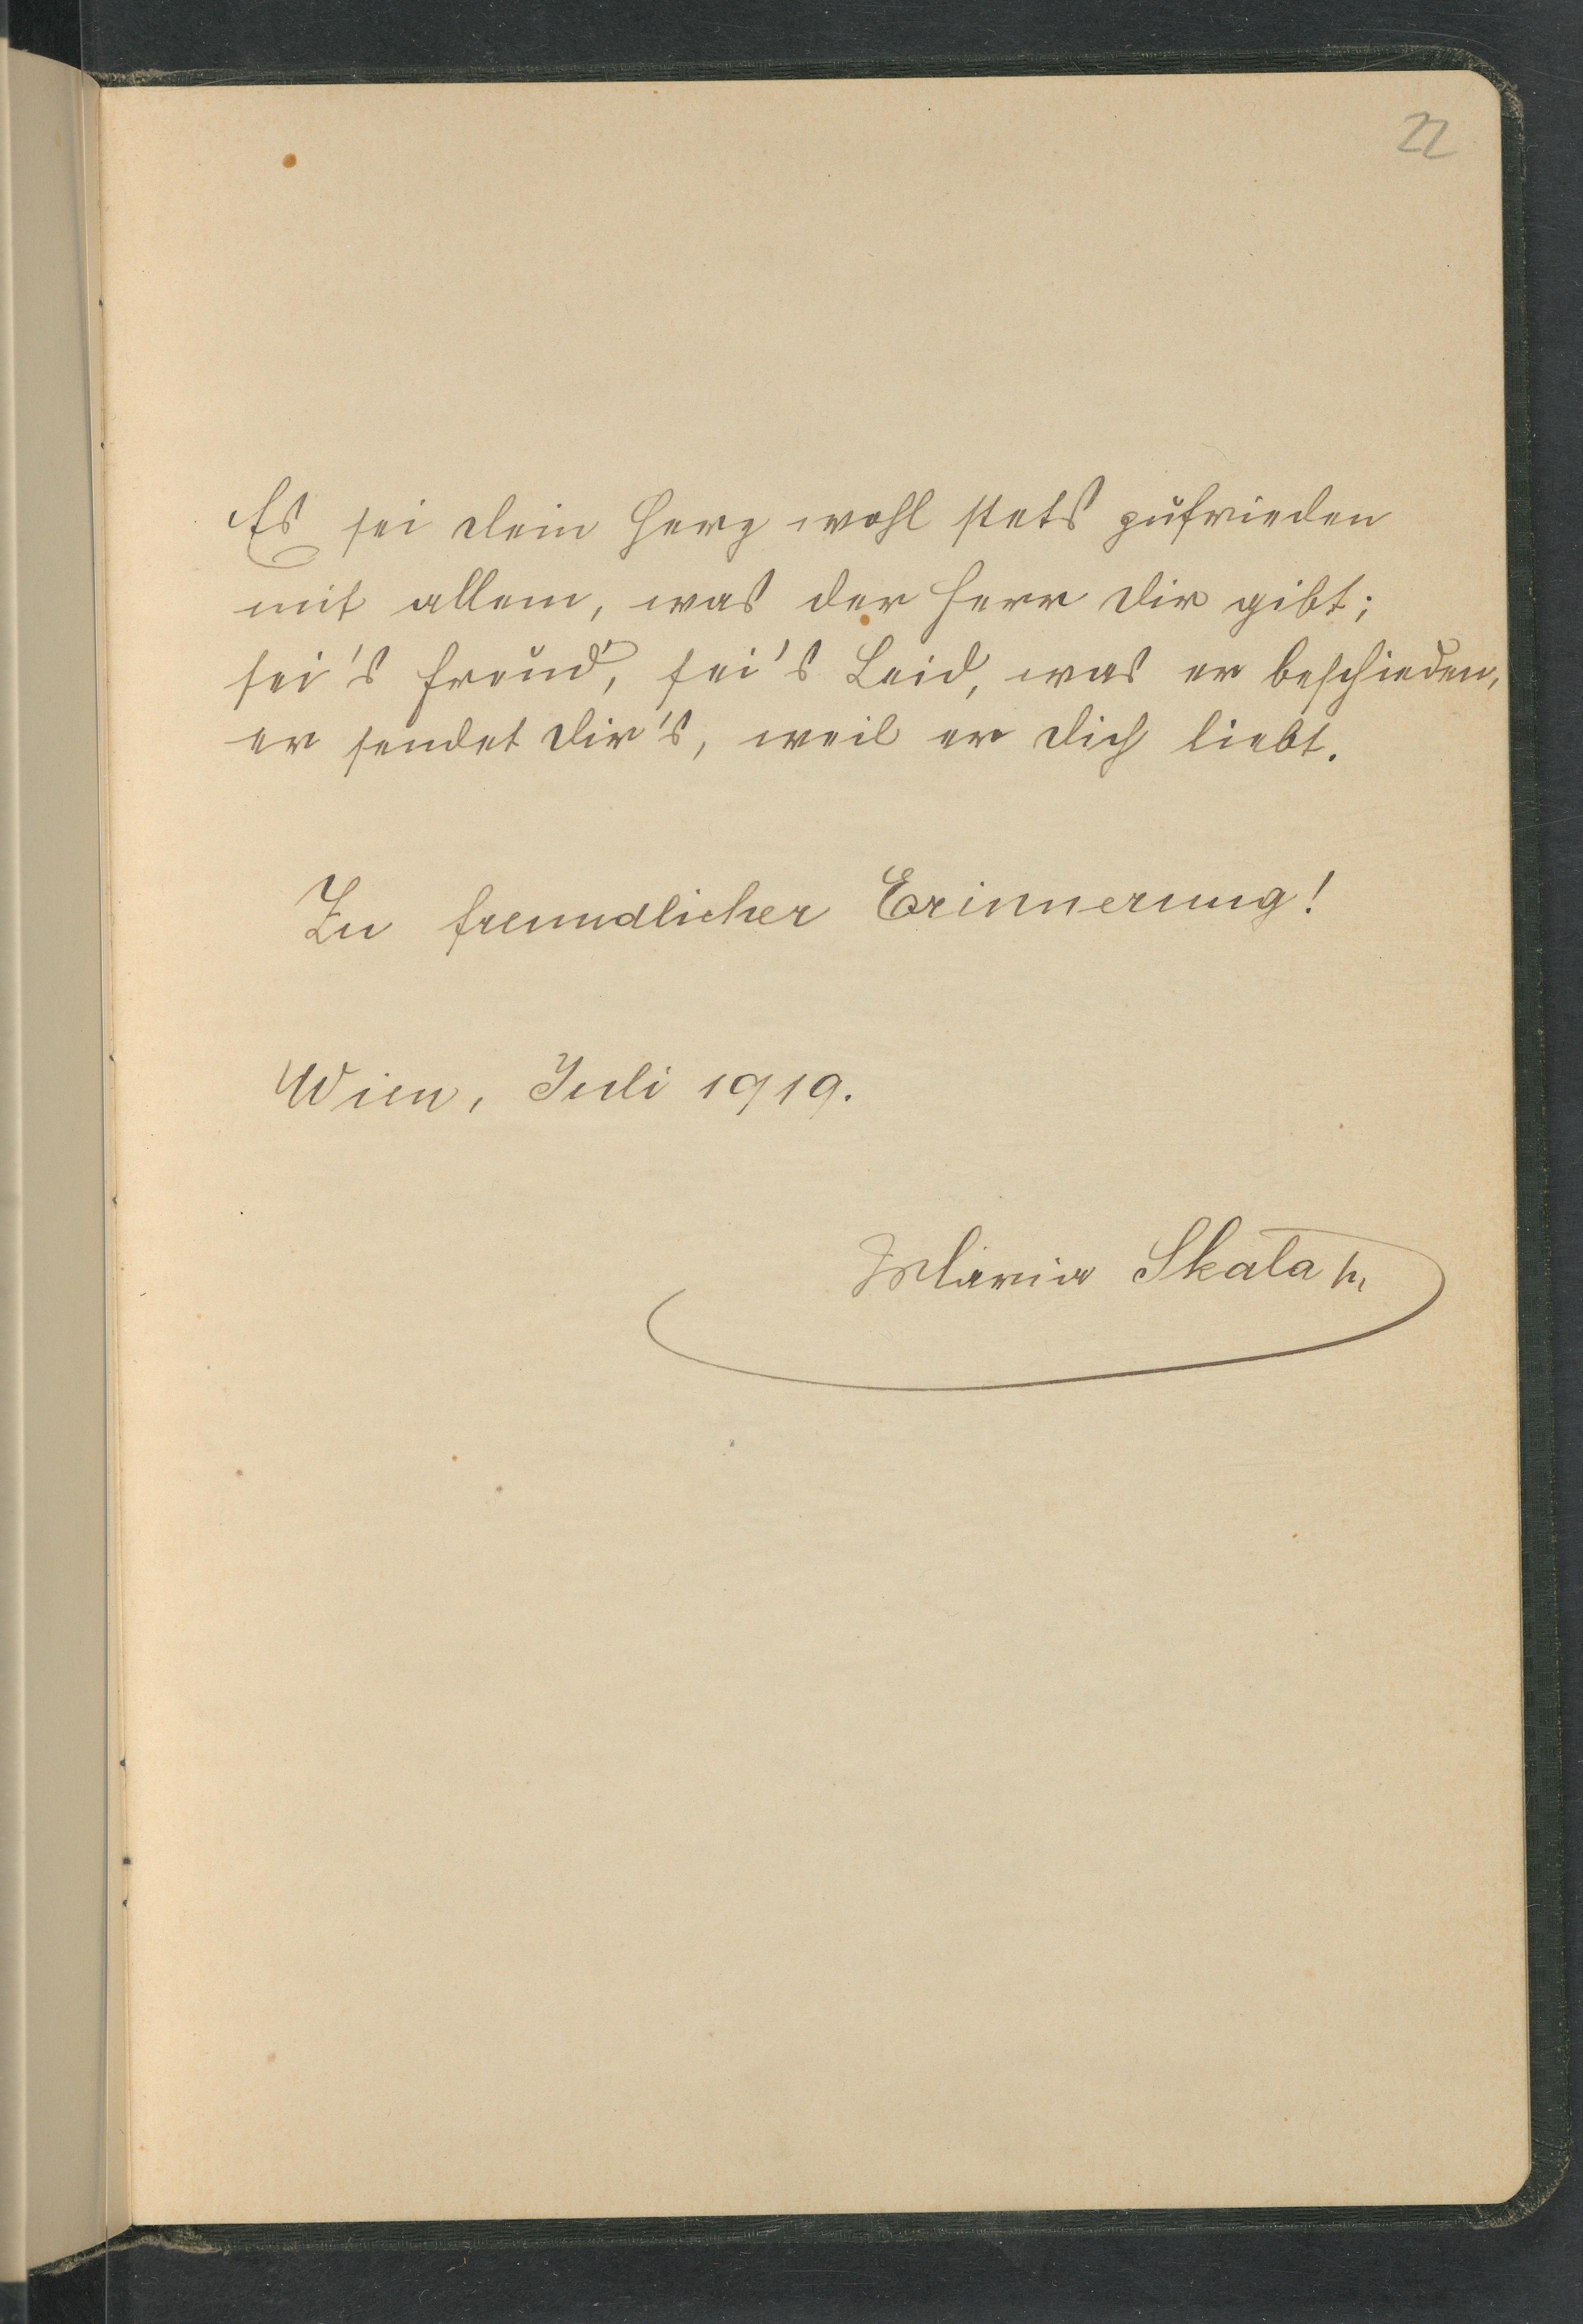 22
Es sei dein Herz wohl stets zufrieden
mit allem, was der Herr dir gibt;
sei's Freud', sei's Leid, was er beschieden,
er sendet dir's, weil er dich liebt.
Zu freundlicher Erinnerung!
Wien, Juli 1919.
Maria Skala